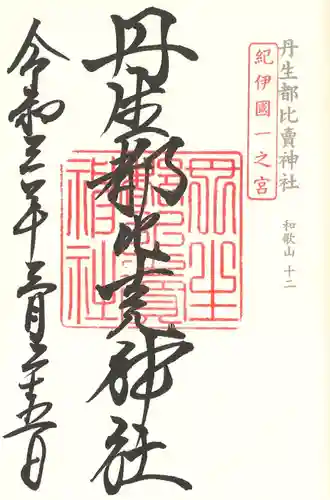 丹生都比賣神社
紀伊國一之宮
和歌山 十二
丹生都比売神社
丹生都比賣神社
令和三年三月二十五日